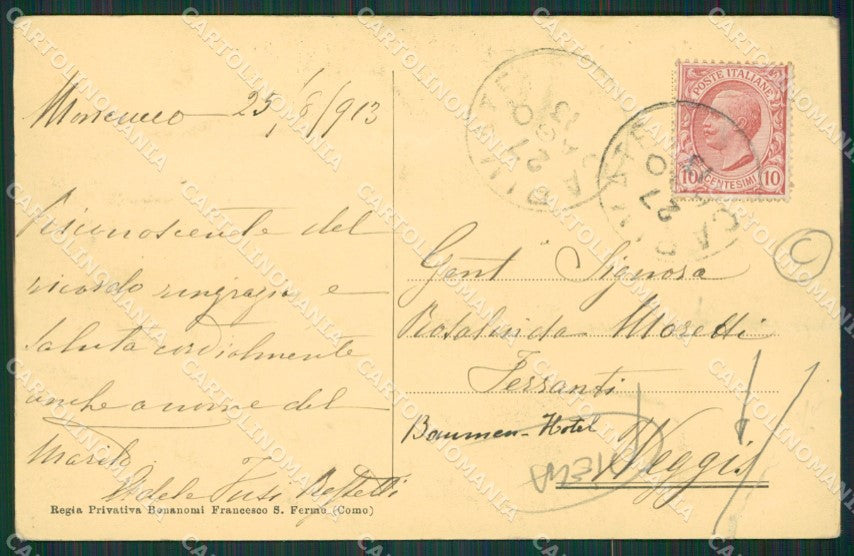 Moncucco 25/8/913
Riconoscente del
ricordo ringrazia e
saluta cordialmente
anche a nome del
Marito
Adele Fusi
Regia Privativa Bonanomi Francesco S. Fermo (Como)
POSTE ITALIANE
10 CENTESIMI 10
Gent Signora
Rosalinda Moretti
Ferranti
Baumen-Hotel
Weggis
CARTOLINOMANIA